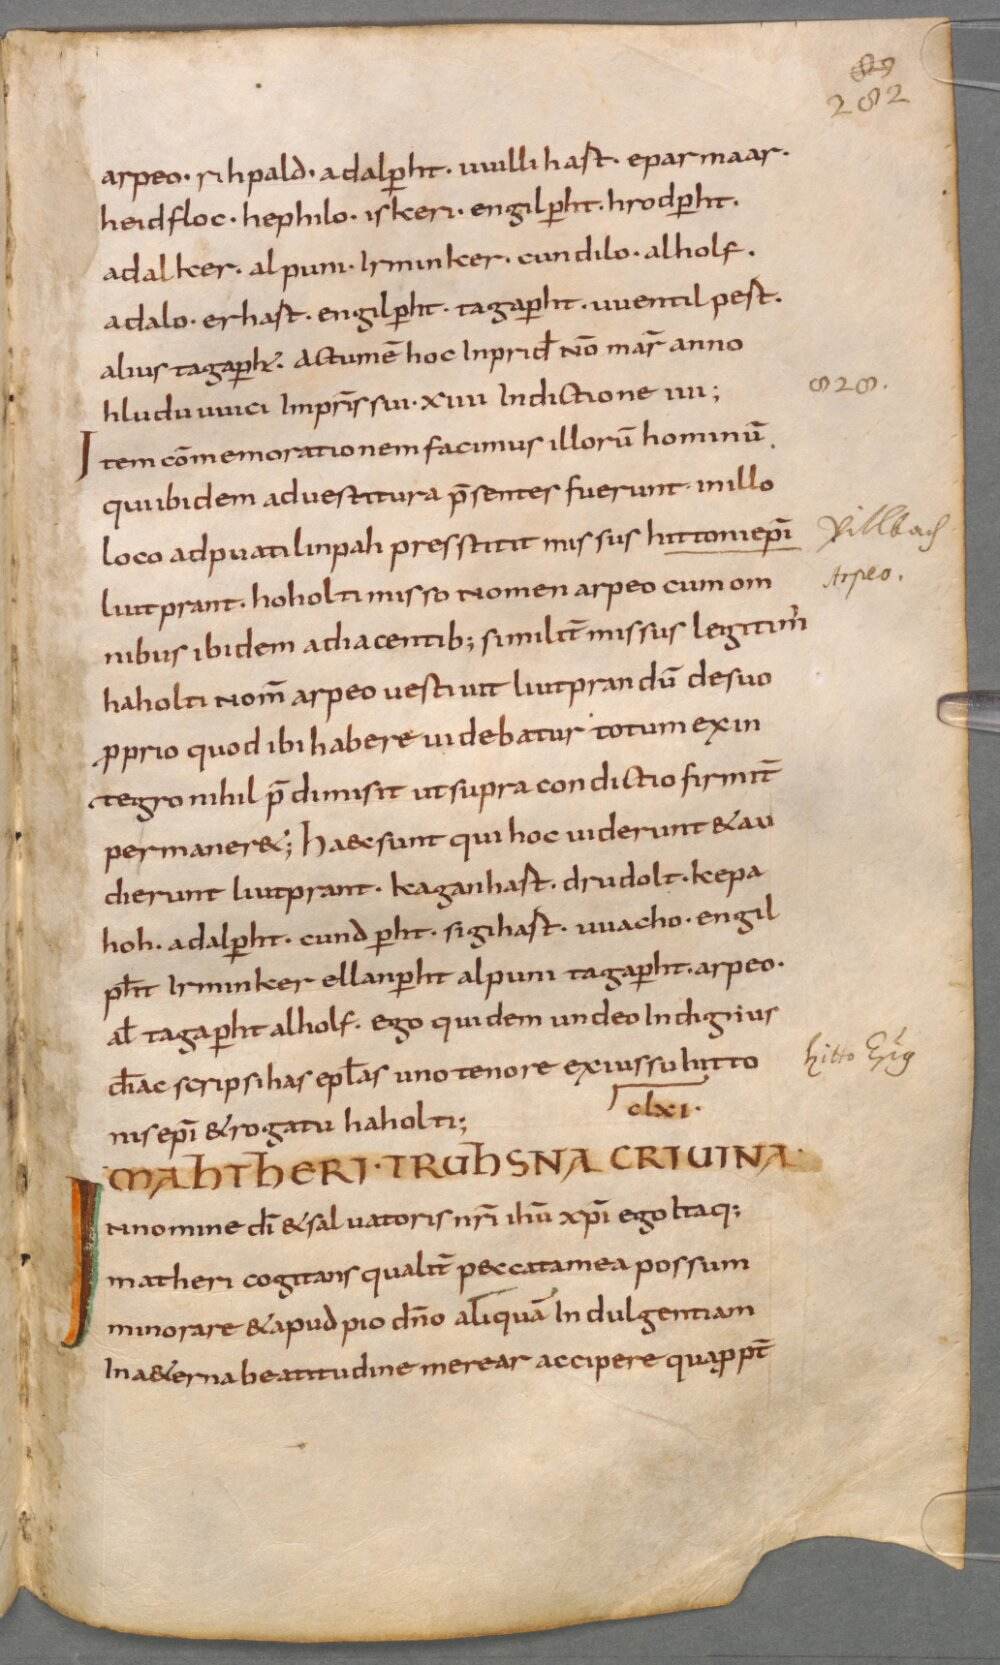 282
arpeo· rihpald· adalp̄ht· uuillihast· eparmaar·
heidfloc· hephilo· iskeri· engilp̄ht· hrodp̄ht·
adalker· alpuni· Irminker· cundilo· alholf·
adalo· erhast· engilp̄ht· tagap̄ht· uuentilpest·
alius tagap̄h̄· actumē hoc Inprid̄ Nō mar̄ anno
hluduuuici Impr̄is sui· xiiii Indictione uii;
828.
Item cōmemorationem facimus illorū hominū
qui ibidem ad uestitura p̄sentes fuerunt· in illo
loco ad puatilinpah presstitit missus hittoni ep̄i
liutprant· hoholti misso Nomen arpeo cum om
Arpeo.
nibus ibidem adiacentib; similit̄ missus legitim̄
haholti Nom̄ arpeo uestiuit liutprandū de suo
ꝓprio quod ibi habere uidebatur totum ex in
tegro nihil p̄dimisit ut supra condictio firmit̄
permaner&; ha&c sunt qui hoc uiderunt & au
dierunt liutprant· kaganhast· drudolt· kepa
hoh· adalp̄ht· cundp̄ht· sigihast· uuacho· engil
p̄ht Irminker ellanp̄ht alpuni tagap̄ht· arpeo·
al̄ tagap̄ht alholf· ego quidem undeo Indignus
diāc scripsi has epl̄as uno tenore ex iussu hitto
hitto
nis ep̄i & rogatu haholti;
clxi·
MAHTHERI· TRUHSNA CRIUINA·
IN nomine dī & saluatoris nr̄i ihū xp̄i ego Itaq;
matheri cogitans qualit̄ peccata mea possum
minorare & apud pio dn̄o aliquā Indulgentiam
In a&erna beatitudine merear accipere quappt̄